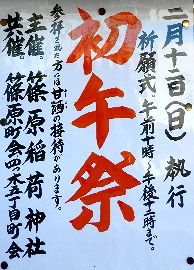 二月十二日(日)執行
祈願式 午前十時〜午後三時まで。
初午祭
参拝された方には甘酒の接待があります。
主催。篠原稲荷神社
共催。篠原町会四ツ五丁目町会